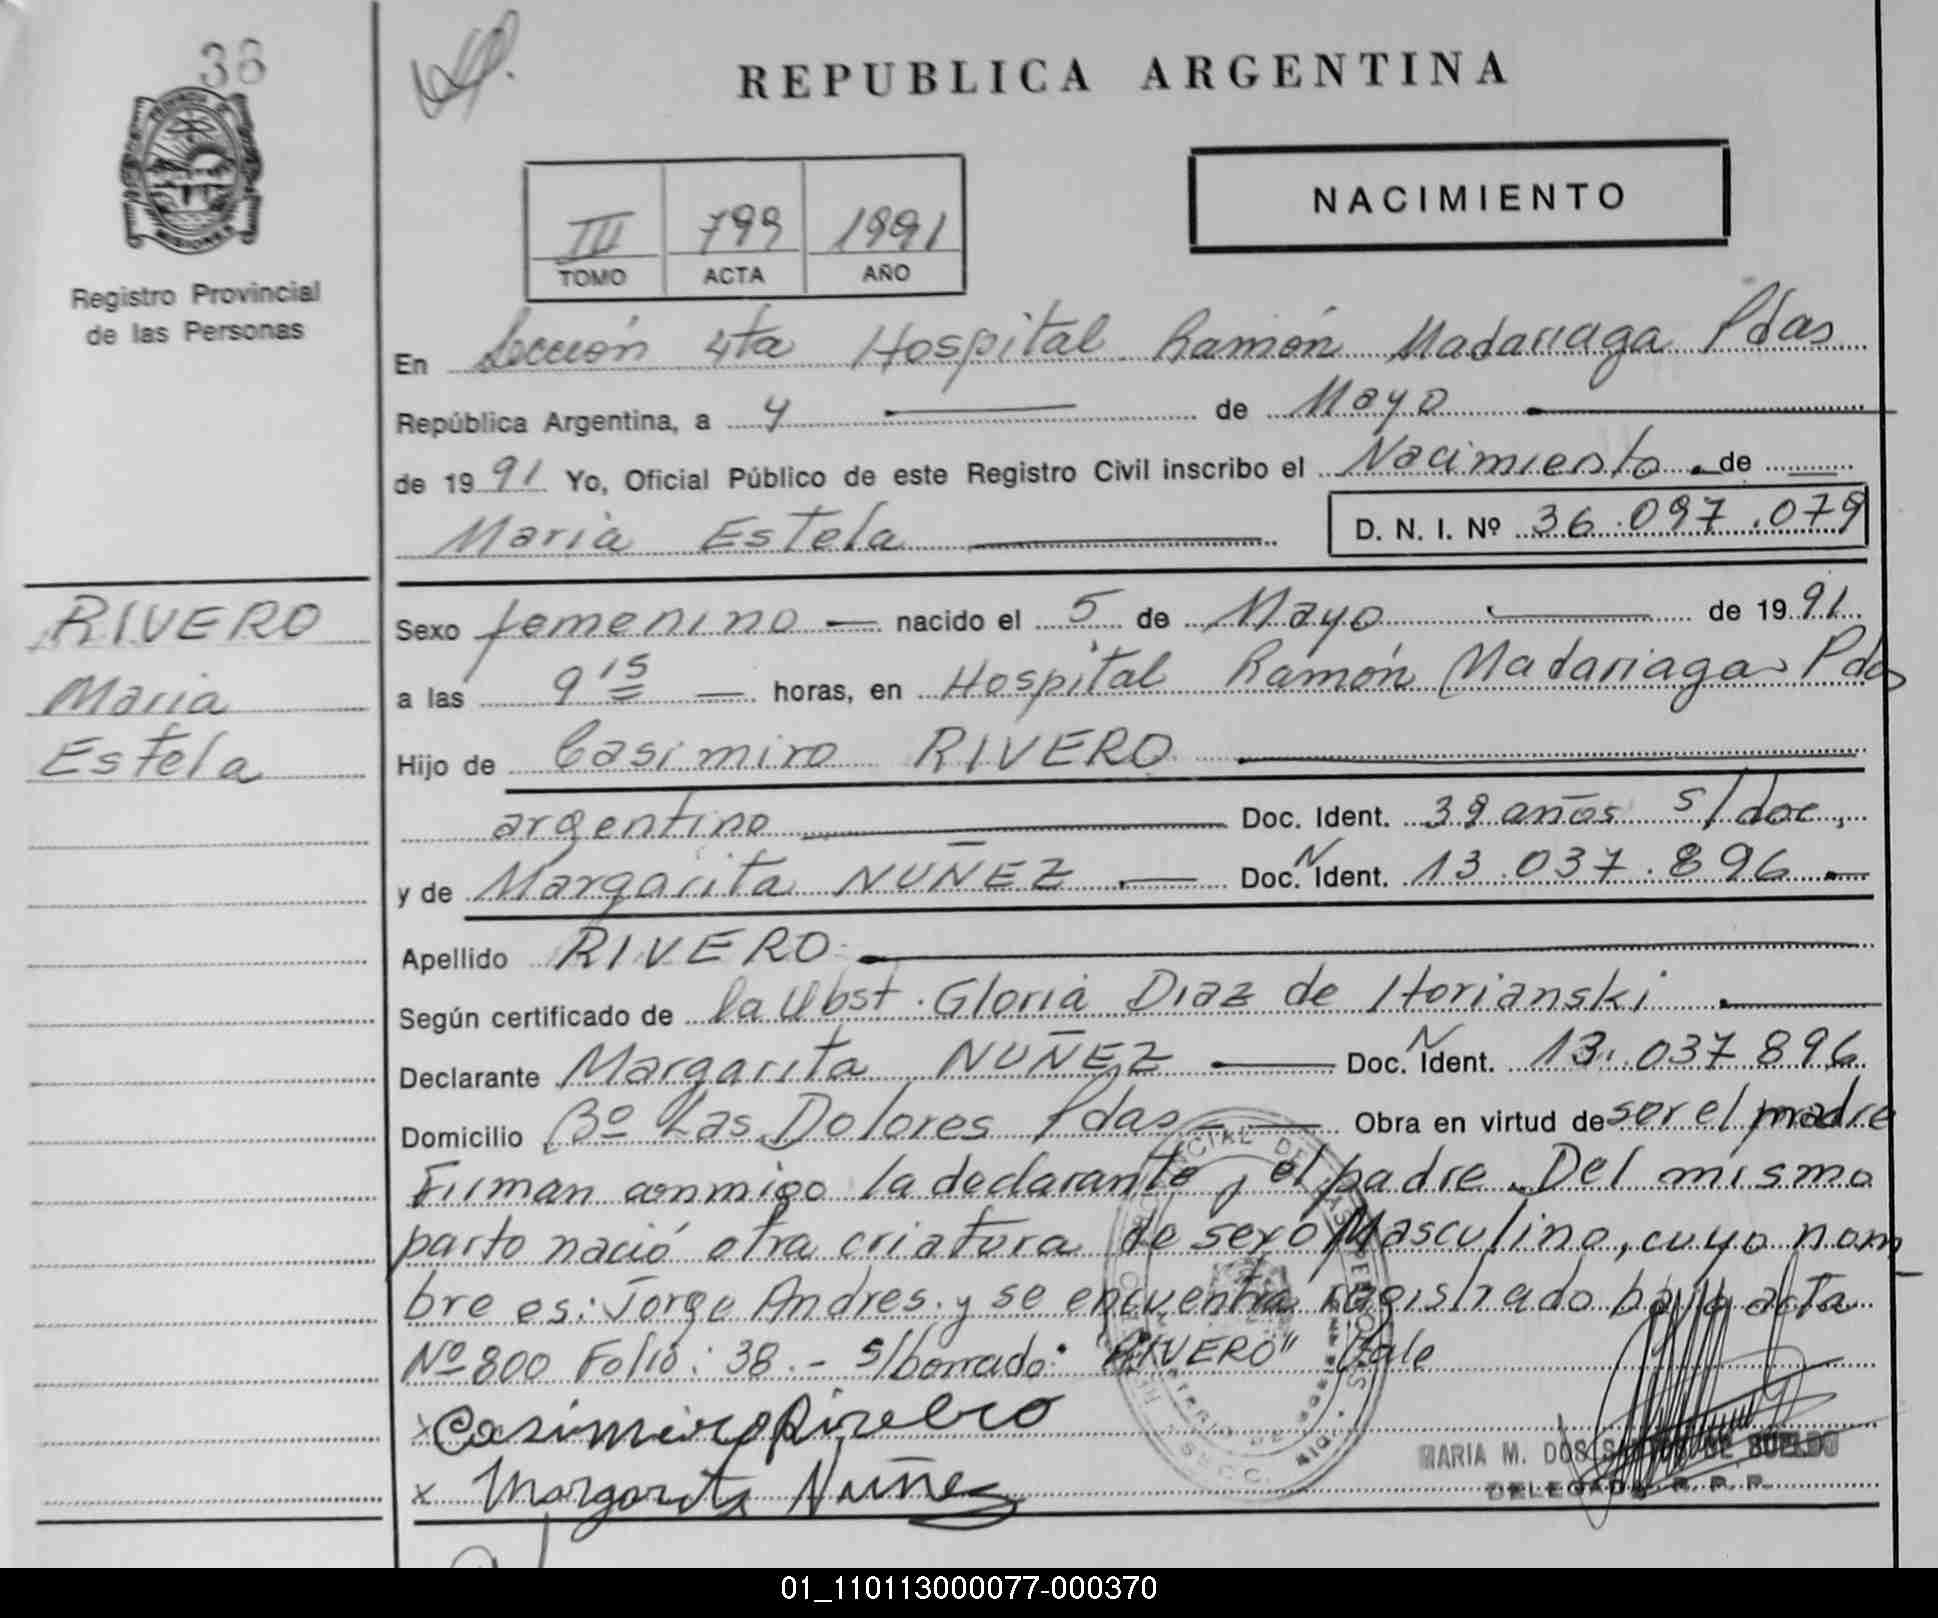 38
REPUBLICA ARGENTINA
III 799 1991
TOMO ACTA AÑO
NACIMIENTO
MISIONES
Registro Provincial
de las Personas
En Sección 4ta Hospital Ramón Madariaga Pdas
República Argentina, a 4 de Mayo
de 1991 Yo, Oficial Público de este Registro Civil inscribo el Nacimiento de
Maria Estela D. N. I. Nº 36.097.079
RIVERO
Maria
Estela
Sexo femenino nacido el 5 de Mayo de 1991
a las 9 15 horas, en Hospital Ramón Madariaga Pdas
Hijo de Casimiro RIVERO
argentino Doc. Ident. 39 años s/doc,
y de Margarita NUÑEZ Doc. N Ident. 13.037.896
Apellido RIVERO
Según certificado de la Obst. Gloria Diaz de Horianski
Declarante Margarita NUÑEZ Doc. N Ident. 13.037.896
Domicilio Bº Las Dolores Pdas Obra en virtud de ser el madre
Firman conmigo la declarante y el padre. Del mismo
parto nació otra criatura de sexo Masculino, cuyo nom
bre es: Jorge Andres y se encuentra registrado bajo acta
Nº 800 Folio: 38.- s/borrado: "RIVERO" Vale
x Casimiro Rivero
x Margarita Nuñez
MARIA M. DOS SUELDO
DELEGADA R. P. P.
01_110113000077-000370